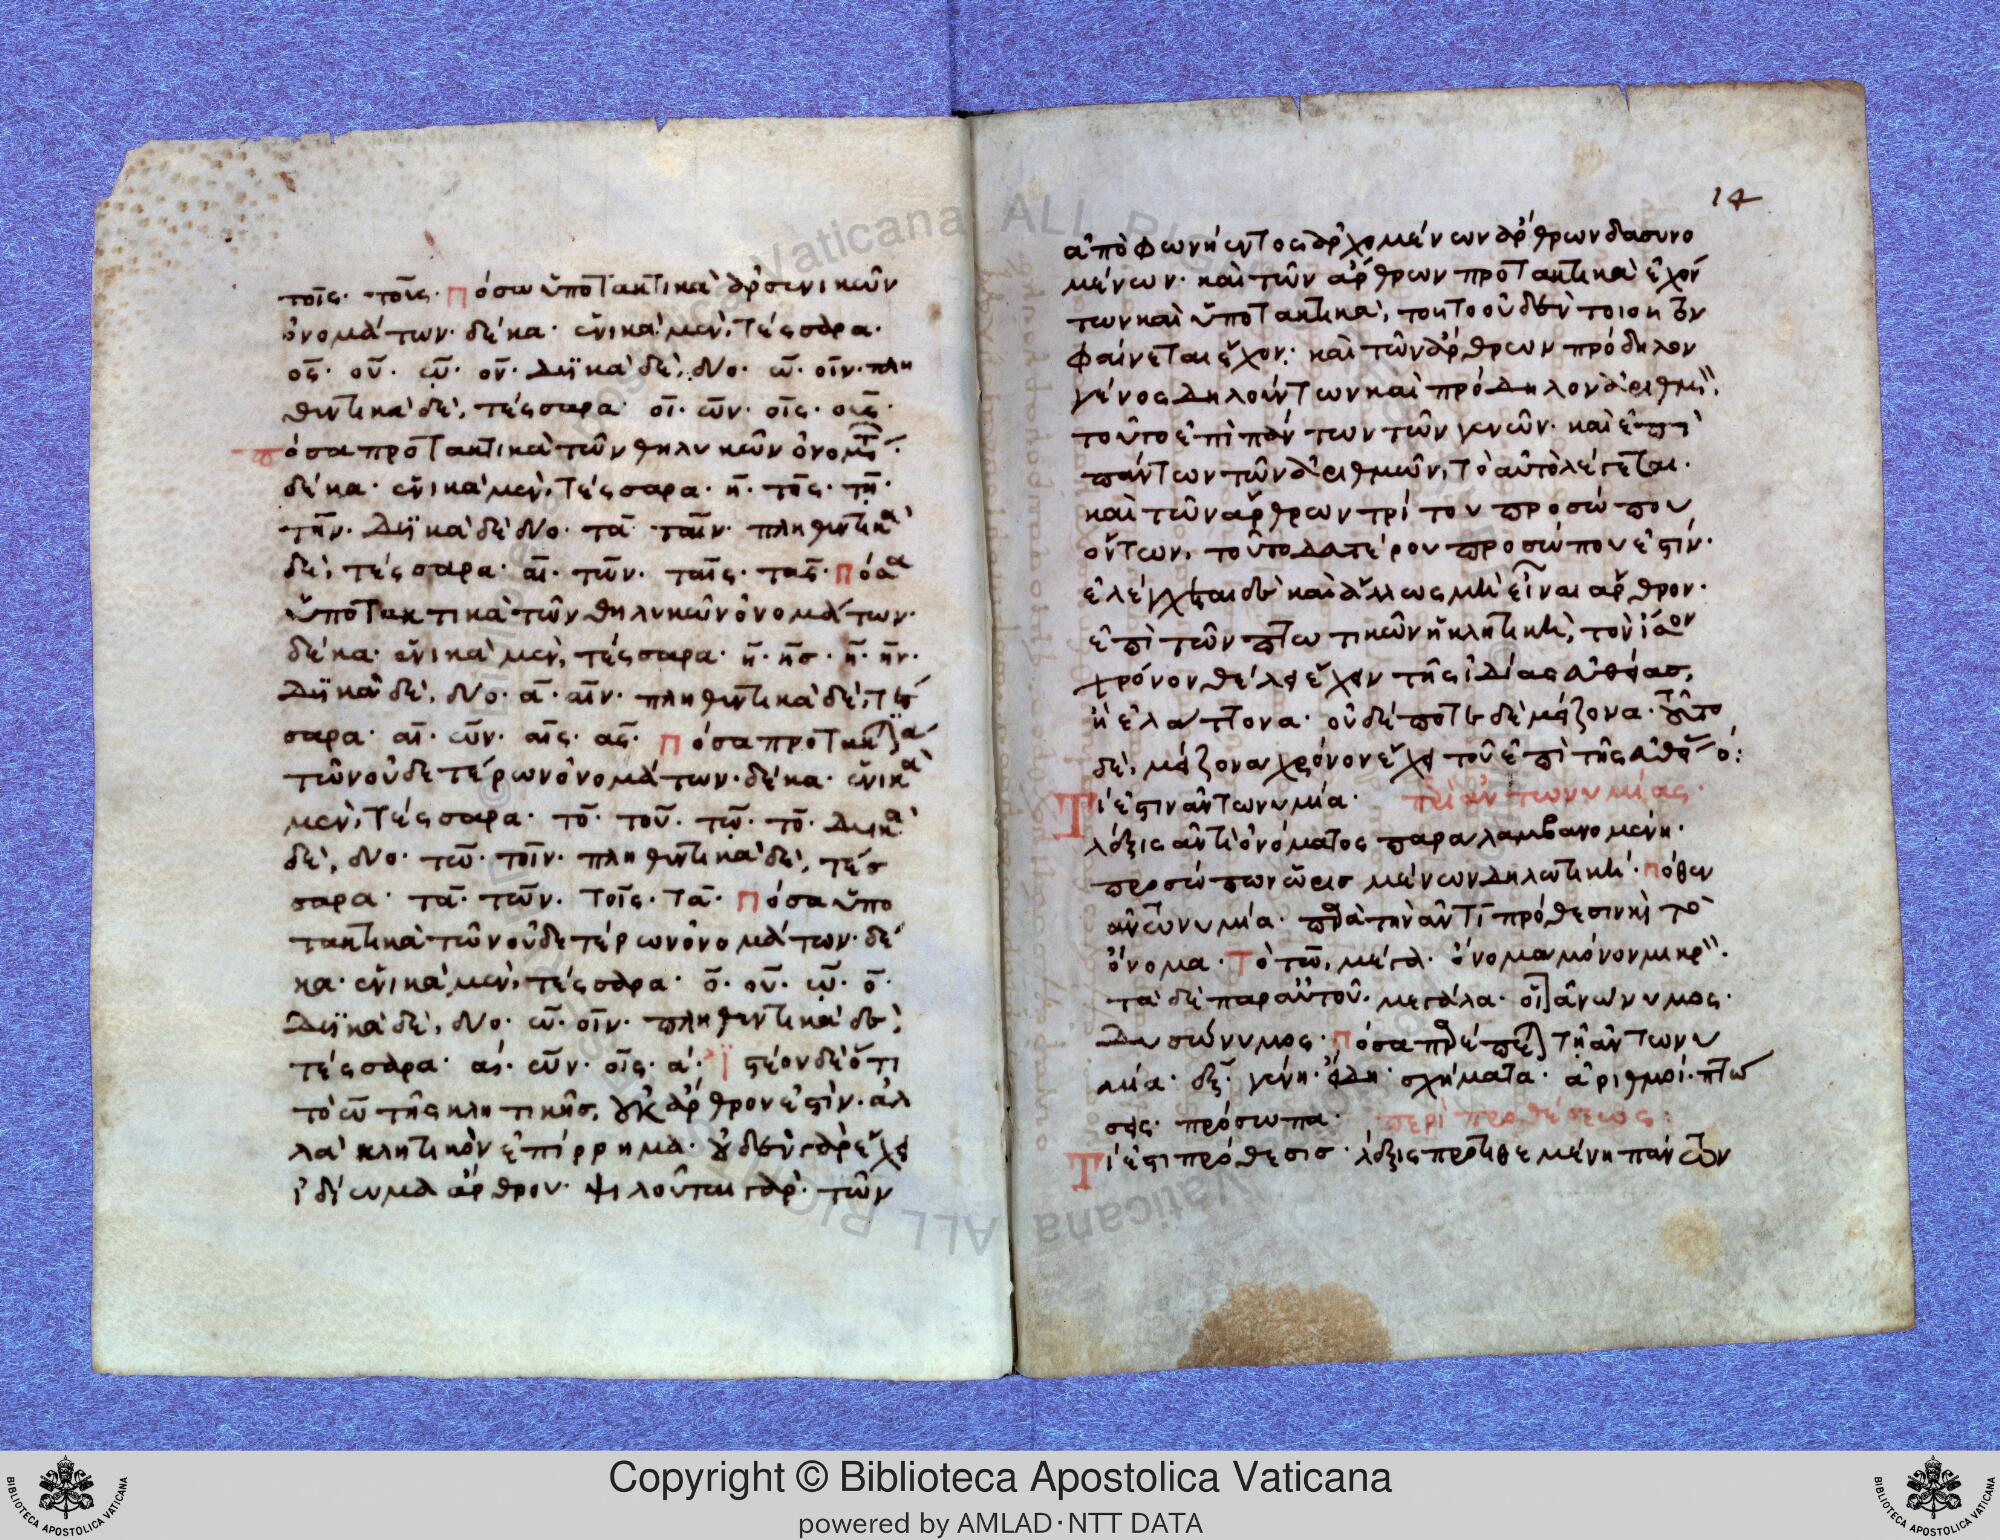 τοῖς· τοῦς· Πόσα ὑποτακτικὰ ἀρσενικῶν
ὀνομάτων· δέκα· ἑνικὰ μὲν, τέσσαρα·
ὃς· οὗ· ᾧ· ὃν· Δυϊκὰ δὲ, δύο· ὣ· οἷν· πλη
θυντικὰ δὲ, τέσσαρα· οἵ· ὧν· οἷς· οὓς·
Πόσα προτακτικὰ τῶν θηλυκῶν ὀνομάτ
δέκα· ἑνικὰ μὲν, τέσσαρα· ἡ· τῆς· τῇ·
τὴν· Δυϊκὰ δὲ δύο· τὰ· ταῖν· πληθυντικὰ
δὲ, τέσσαρα· αἱ· τῶν· ταῖς· τὰς· Πόσα
ὑποτακτικὰ τῶν θηλυκῶν ὀνομάτων·
δέκα· ἑνικὰ μὲν, τέσσαρα· ἥ· ἧς· ᾗ· ἥν·
Δυϊκὰ δὲ, δύο· ἅ· αἷν· πληθυντικὰ δὲ, τέσ
σαρα· αἵ· ὧν· αἷς· ἅς· Πόσα προτκτικὰ
τῶν οὐδετέρων ὀνομάτων· δέκα· ἑνικὰ
μὲν, τέσσαρα· τὸ· τοῦ· τῷ· τὸ· Δυϊκὰ
δὲ, δύο· τὼ· τοῖν· πληθυντικὰ δὲ, τέσ
σαρα· τὰ· τῶν· τοῖς· τὰ· Πόσα ὑπο
τακτικὰ τῶν οὐδετέρων ὀνομάτων· δέ
κα· ἑνικὰ μὲν, τέσσαρα· ὅ· οὗ· ᾧ· ὅ·
Δυϊκὰ δὲ, δύο· ὥ· οἷν· πληθυντικὰ δὲ,
τέσσαρα· ἅ· ὧν· οἷς· ἅ· Ἰστέον δὲ ὅτι
τὸ ὦ τῆς κλητικῆς, οὐκ ἄρθρον ἐστὶν· ἀλ
λὰ κλητικὸν ἐπίρρημα· οὐδὲν γὰρ ἔχει
ἰδίωμα ἄρθρον· ψιλοῦται γὰρ· τῶν
14
ἀπὸ φωνήεντος ἀρχομένων ἄρθρων δασυνο
μένων· καὶ τῶν ἄρθρων προτακτικὰ ἐχόν
των καὶ ὑποτακτικὰ, τοῦτο οὐδὲν τοιοῦτον
φαίνεται ἔχον· καὶ τῶν ἄρθρων πρόδηλον
γένος δηλούντων καὶ πρόδηλον ἀριθμὸν,
τοῦτο ἐπὶ πάντων τῶν γενῶν· καὶ ἐπὶ
πάντων τῶν ἀριθμῶν, τὸ αὐτὸ λέγεται·
καὶ τῶν ἄρθρων τρίτου προσώπου
ὄντων, τοῦτο δευτέρου προσώπου ἐστίν·
ἐλέγχεται δὲ καὶ ἄλλως μὴ εἶναι ἄρθρον·
ἐπὶ τῶν πτωτικῶν ἡ κλητικὴ, τὸν ἴσον
χρόνον θέλει ἔχειν τῆς ἰδίας εὐθείας,
ἢ ἐλάττονα· οὐδέποτε δὲ μείζονα· τοῦτο
δὲ, μείζονα χρόνον ἔχει τοῦ ἐπὶ τῆς εὐθείας ὁ:
Τί ἐστιν ἀντωνυμία· περὶ ἀντωνυμίας·
λέξις ἀντὶ ὀνόματος παραλαμβανομένη·
προσώπων ὡρισμένων δηλωτική· Πόθεν
ἀντωνυμία· παρὰ τὴν ἀντὶ πρόθεσιν καὶ τὸ
ὄνομα· Τὸ τω, μέγα· ὄνομα μόνον μικρὸν·
τὰ δὲ παρ' αὐτοῦ, μεγάλα· οἷον ἀνώνυμος·
Δυσώνυμος· Πόσα παρέπεται τῇ ἀντωνυ
μίᾳ· ἕξ· γένη· εἴδη· σχήματα· ἀριθμοί· πτώ
σεις· πρόσωπα· περὶ προθέσεως:
Τί ἐστι πρόθεσις· λέξις προτιθεμένη πάντων
Copyright © Biblioteca Apostolica Vaticana
powered by AMLAD·NTT DATA
BIBLIOTECA APOSTOLICA VATICANA
BIBLIOTECA APOSTOLICA VATICANA